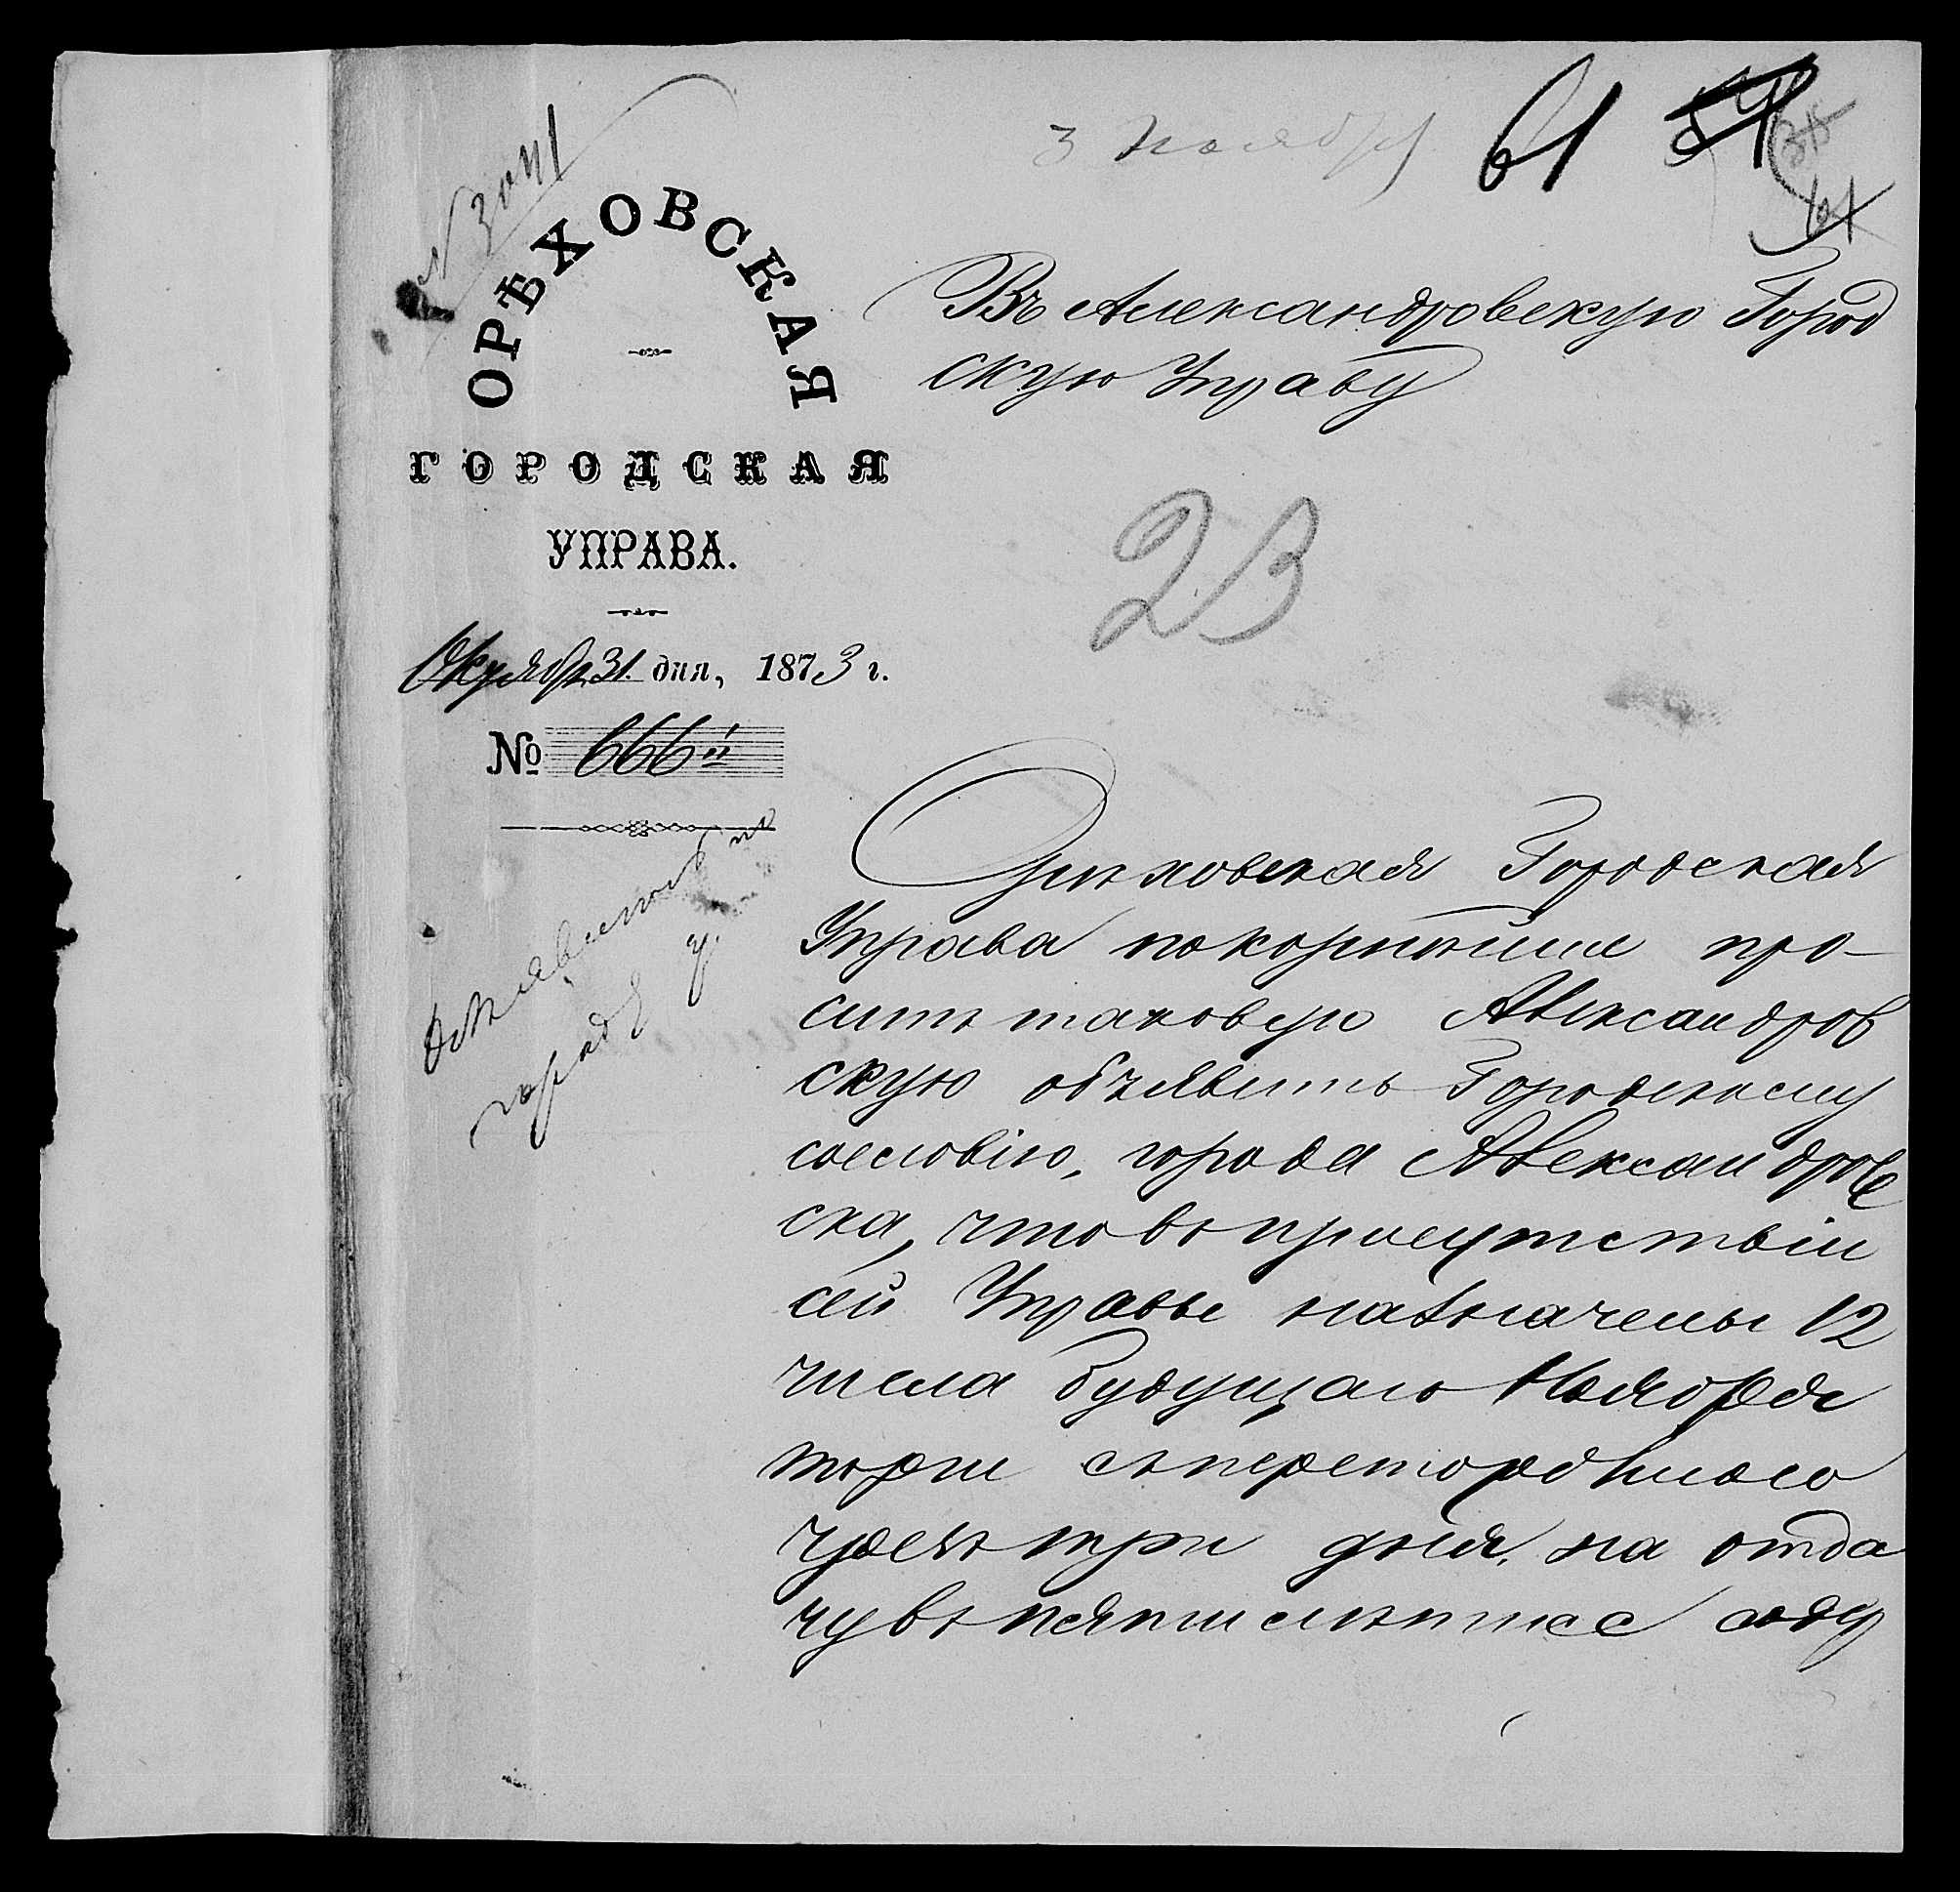 3 Ноября
61
№ 3041
ОРѢХОВСКАЯ
ГОРОДСКАЯ
УПРАВА.
Октября 31 дня, 1873 г.
№ 666
Объявить по
городу
Въ Александровскую Город
скую Управу
23
Орѣховская Городская
Управа покорнѣйше про-
ситъ таковую Александров
скую объявить Городскому
сословію, города Александров
ска, что въ присутствіи
сей Управы назначены 12
числа будущаго Ноября
торги съ переторжкою
чрезъ три дня, на отда
чу въ пятилѣтнее соду